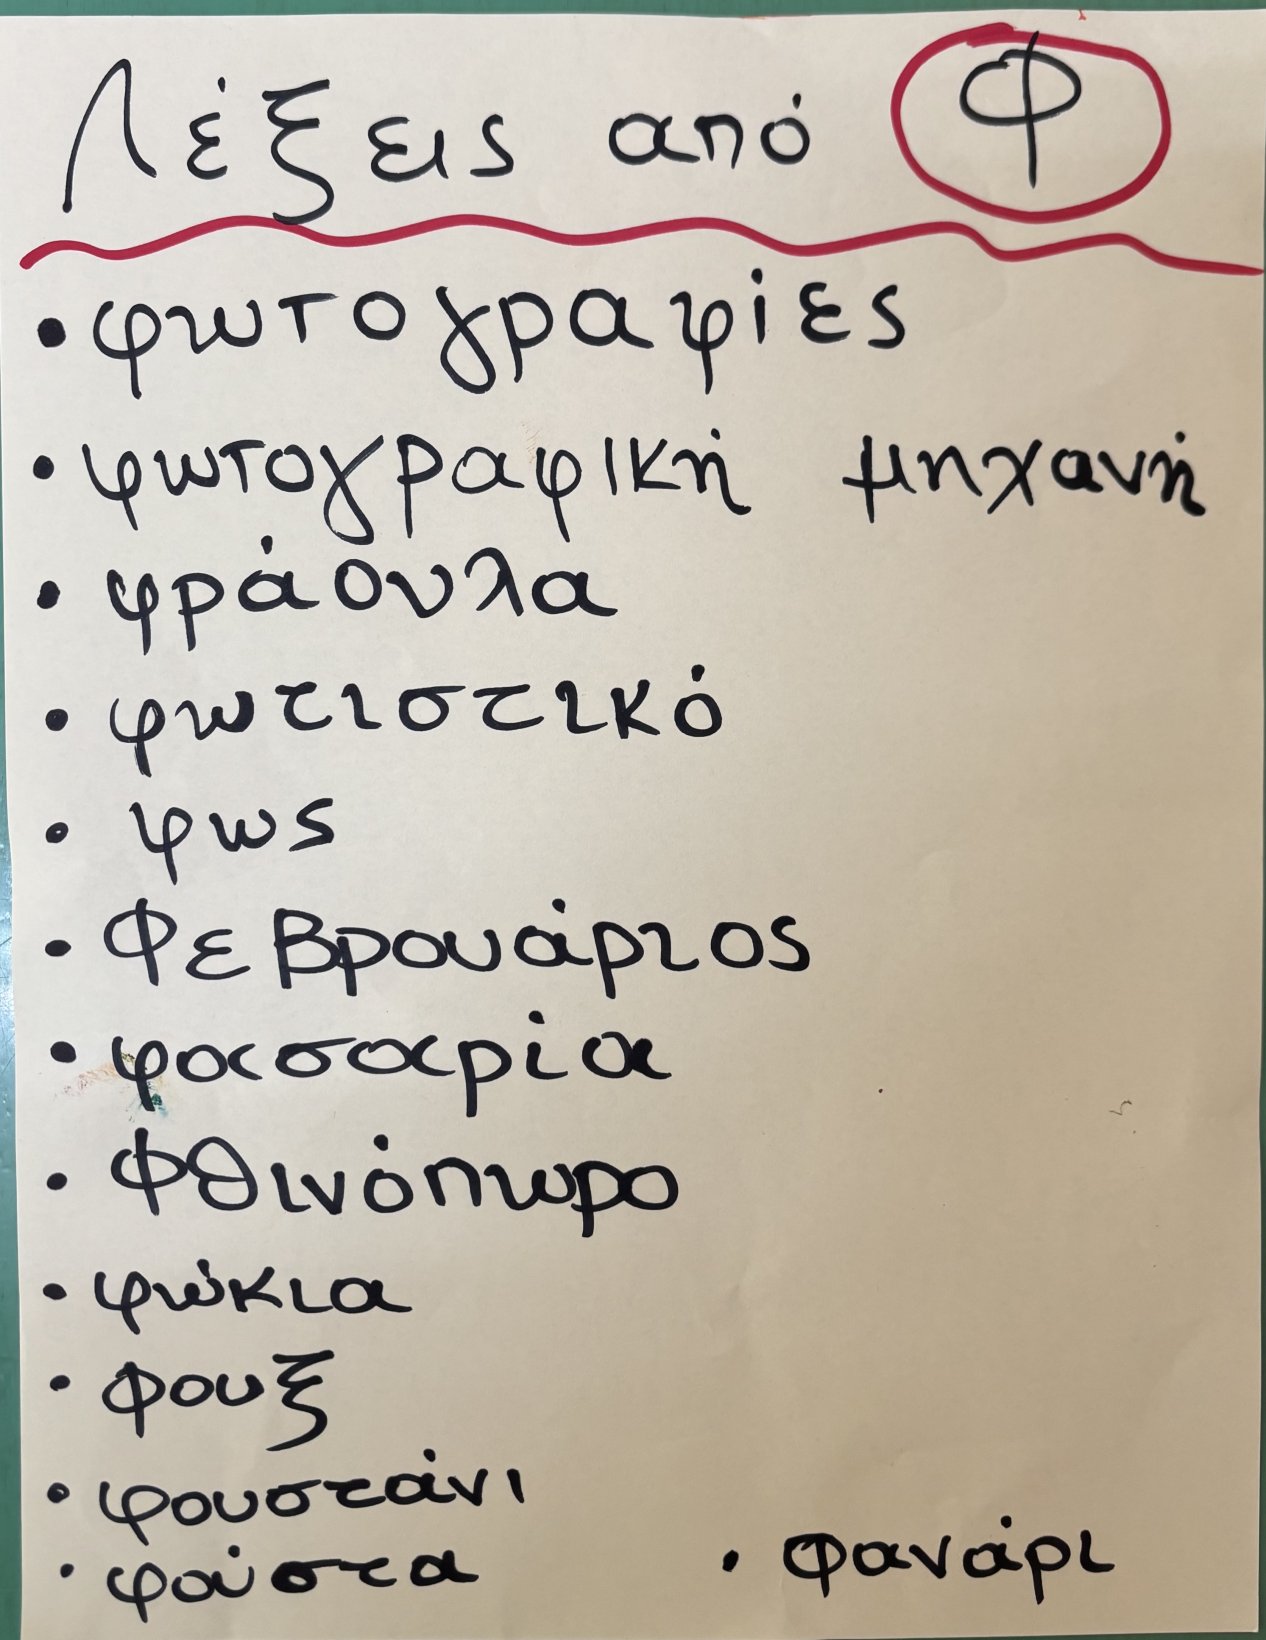 Λέξεις από Φ
• φωτογραφίες
• φωτογραφική μηχανή
• φράουλα
• φωτιστικό
• φως
• Φεβρουάριος
• φασαρία
• Φθινόπωρο
• φώκια
• φουξ
• φουστάνι
• φούστα • φανάρι